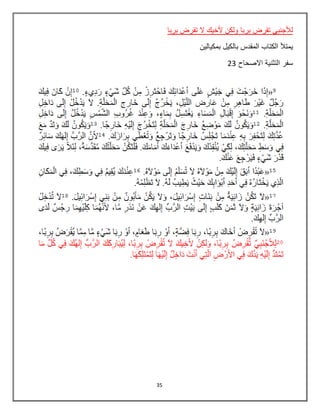 للأجنبي تقرض بربا ولكن لأخيك لا تقرض بربا
يمتلأ الكتاب المقدس بالكيل بمكيالين
سفر التثنية الاصحاح 23
9«إِذَا خَرَجْتَ فِي جَيْشٍ عَلَى أَعْدَائِكَ فَاحْتَرِزْ مِنْ كُلِّ شَيْءٍ رَدِيءٍ. 10إِنْ كَانَ فِيكَ
رَجُلٌ غَيْرَ طَاهِرٍ مِنْ عَارِضِ اللَّيْلِ، يَخْرُجُ إِلَى خَارِجِ الْمَحَلَّةِ. لاَ يَدْخُلْ إِلَى دَاخِلِ
الْمَحَلَّةِ. 11وَنَحْوَ إِقْبَالِ الْمَسَاءِ يَغْتَسِلُ بِمَاءٍ، وَعِنْدَ غُرُوبِ الشَّمْسِ يَدْخُلُ إِلَى دَاخِلِ
الْمَحَلَّةِ. 12وَيَكُونُ لَكَ مَوْضِعٌ خَارِجَ الْمَحَلَّةِ لِتَخْرُجَ إِلَيْهِ خَارِجًا. 13وَيَكُونُ لَكَ وَتَدٌ مَعَ
عُدَّتِكَ لِتَحْفِرَ بِهِ عِنْدَمَا تَجْلِسُ خَارِجًا وَتَرْجِعُ وَتُغَطِّي بُرَازَكَ. 14لأَنَّ الرَّبَّ إِلهَكَ سَائِرٌ
فِي وَسَطِ مَحَلَّتِكَ، لِكَيْ يُنْقِذَكَ وَيَدْفَعَ أَعْدَاءَكَ أَمَامَكَ. فَلْتَكُنْ مَحَلَّتُكَ مُقَدَّسَةً، لِئَلاَّ يَرَى فِيكَ
قَذَرَ شَيْءٍ فَيَرْجِعَ عَنْكَ.
15«عَبْدًا أَبَقَ إِلَيْكَ مِنْ مَوْلاَهُ لاَ تُسَلِّمْ إِلَى مَوْلاَهُ. 16عِنْدَكَ يُقِيمُ فِي وَسَطِكَ، فِي الْمَكَانِ
الَّذِي يَخْتَارُهُ فِي أَحَدِ أَبْوَابِكَ حَيْثُ يَطِيبُ لَهُ. لاَ تَظْلِمْهُ.
17«لاَ تَكُنْ زَانِيَةٌ مِنْ بَنَاتِ إِسْرَائِيلَ، وَلاَ يَكُنْ مَأْبُونٌ مِنْ بَنِي إِسْرَائِيلَ. 18لاَ تُدْخِلْ
أُجْرَةَ زَانِيَةٍ وَلاَ ثَمَنَ كَلْبٍ إِلَى بَيْتِ الرَّبِّ إِلهِكَ عَنْ نَذْرٍ مَّا، لأَنَّهُمَا كِلَيْهِمَا رِجْسٌ لَدَى
الرَّبِّ إِلهِكَ.
19«لاَ تُقْرِضْ أَخَاكَ بِرِبًا، رِبَا فِضَّةٍ، أَوْ رِبَا طَعَامٍ، أَوْ رِبَا شَيْءٍ مَّا مِمَّا يُقْرَضُ بِرِبًا،
20لِلأَجْنَبِيِّ تُقْرِضُ بِرِبًا، وَلكِنْ لأَخِيكَ لاَ تُقْرِضْ بِرِبًا، لِيُبَارِكَكَ الرَّبُّ إِلهُكَ فِي كُلِّ مَا
تَمْتَدُّ إِلَيْهِ يَدُكَ فِي الأَرْضِ الَّتِي أَنْتَ دَاخِلٌ إِلَيْهَا لِتَمْتَلِكَهَا.
35